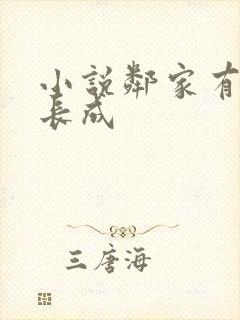 小説鄰家有
長成
三唐海